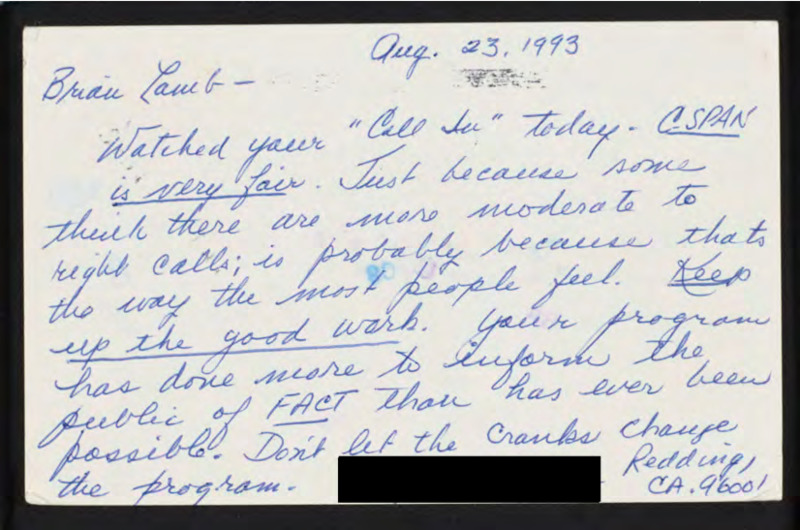 Aug. 23, 1993
Brian Lamb –
Watched your "Call In" today. C-SPAN
is very fair. Just because some
think there are more moderate to
right calls; is probably because thats
the way the most people feel. Keep
up the good work. Your program
has done more to inform the
public of FACT than has ever been
possible. Don't let the cranks change
the program.
Redding,
CA. 96001